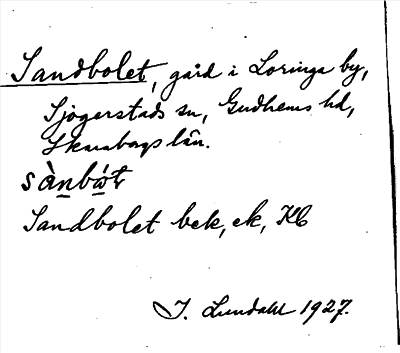 Sandbolet, gård i Loringa by,
Sjögerstads sn, Gudhems hd,
Skaraborgs län.
sànbót
Sandbolet bek, ek, KB
I. Lundahl 1927.